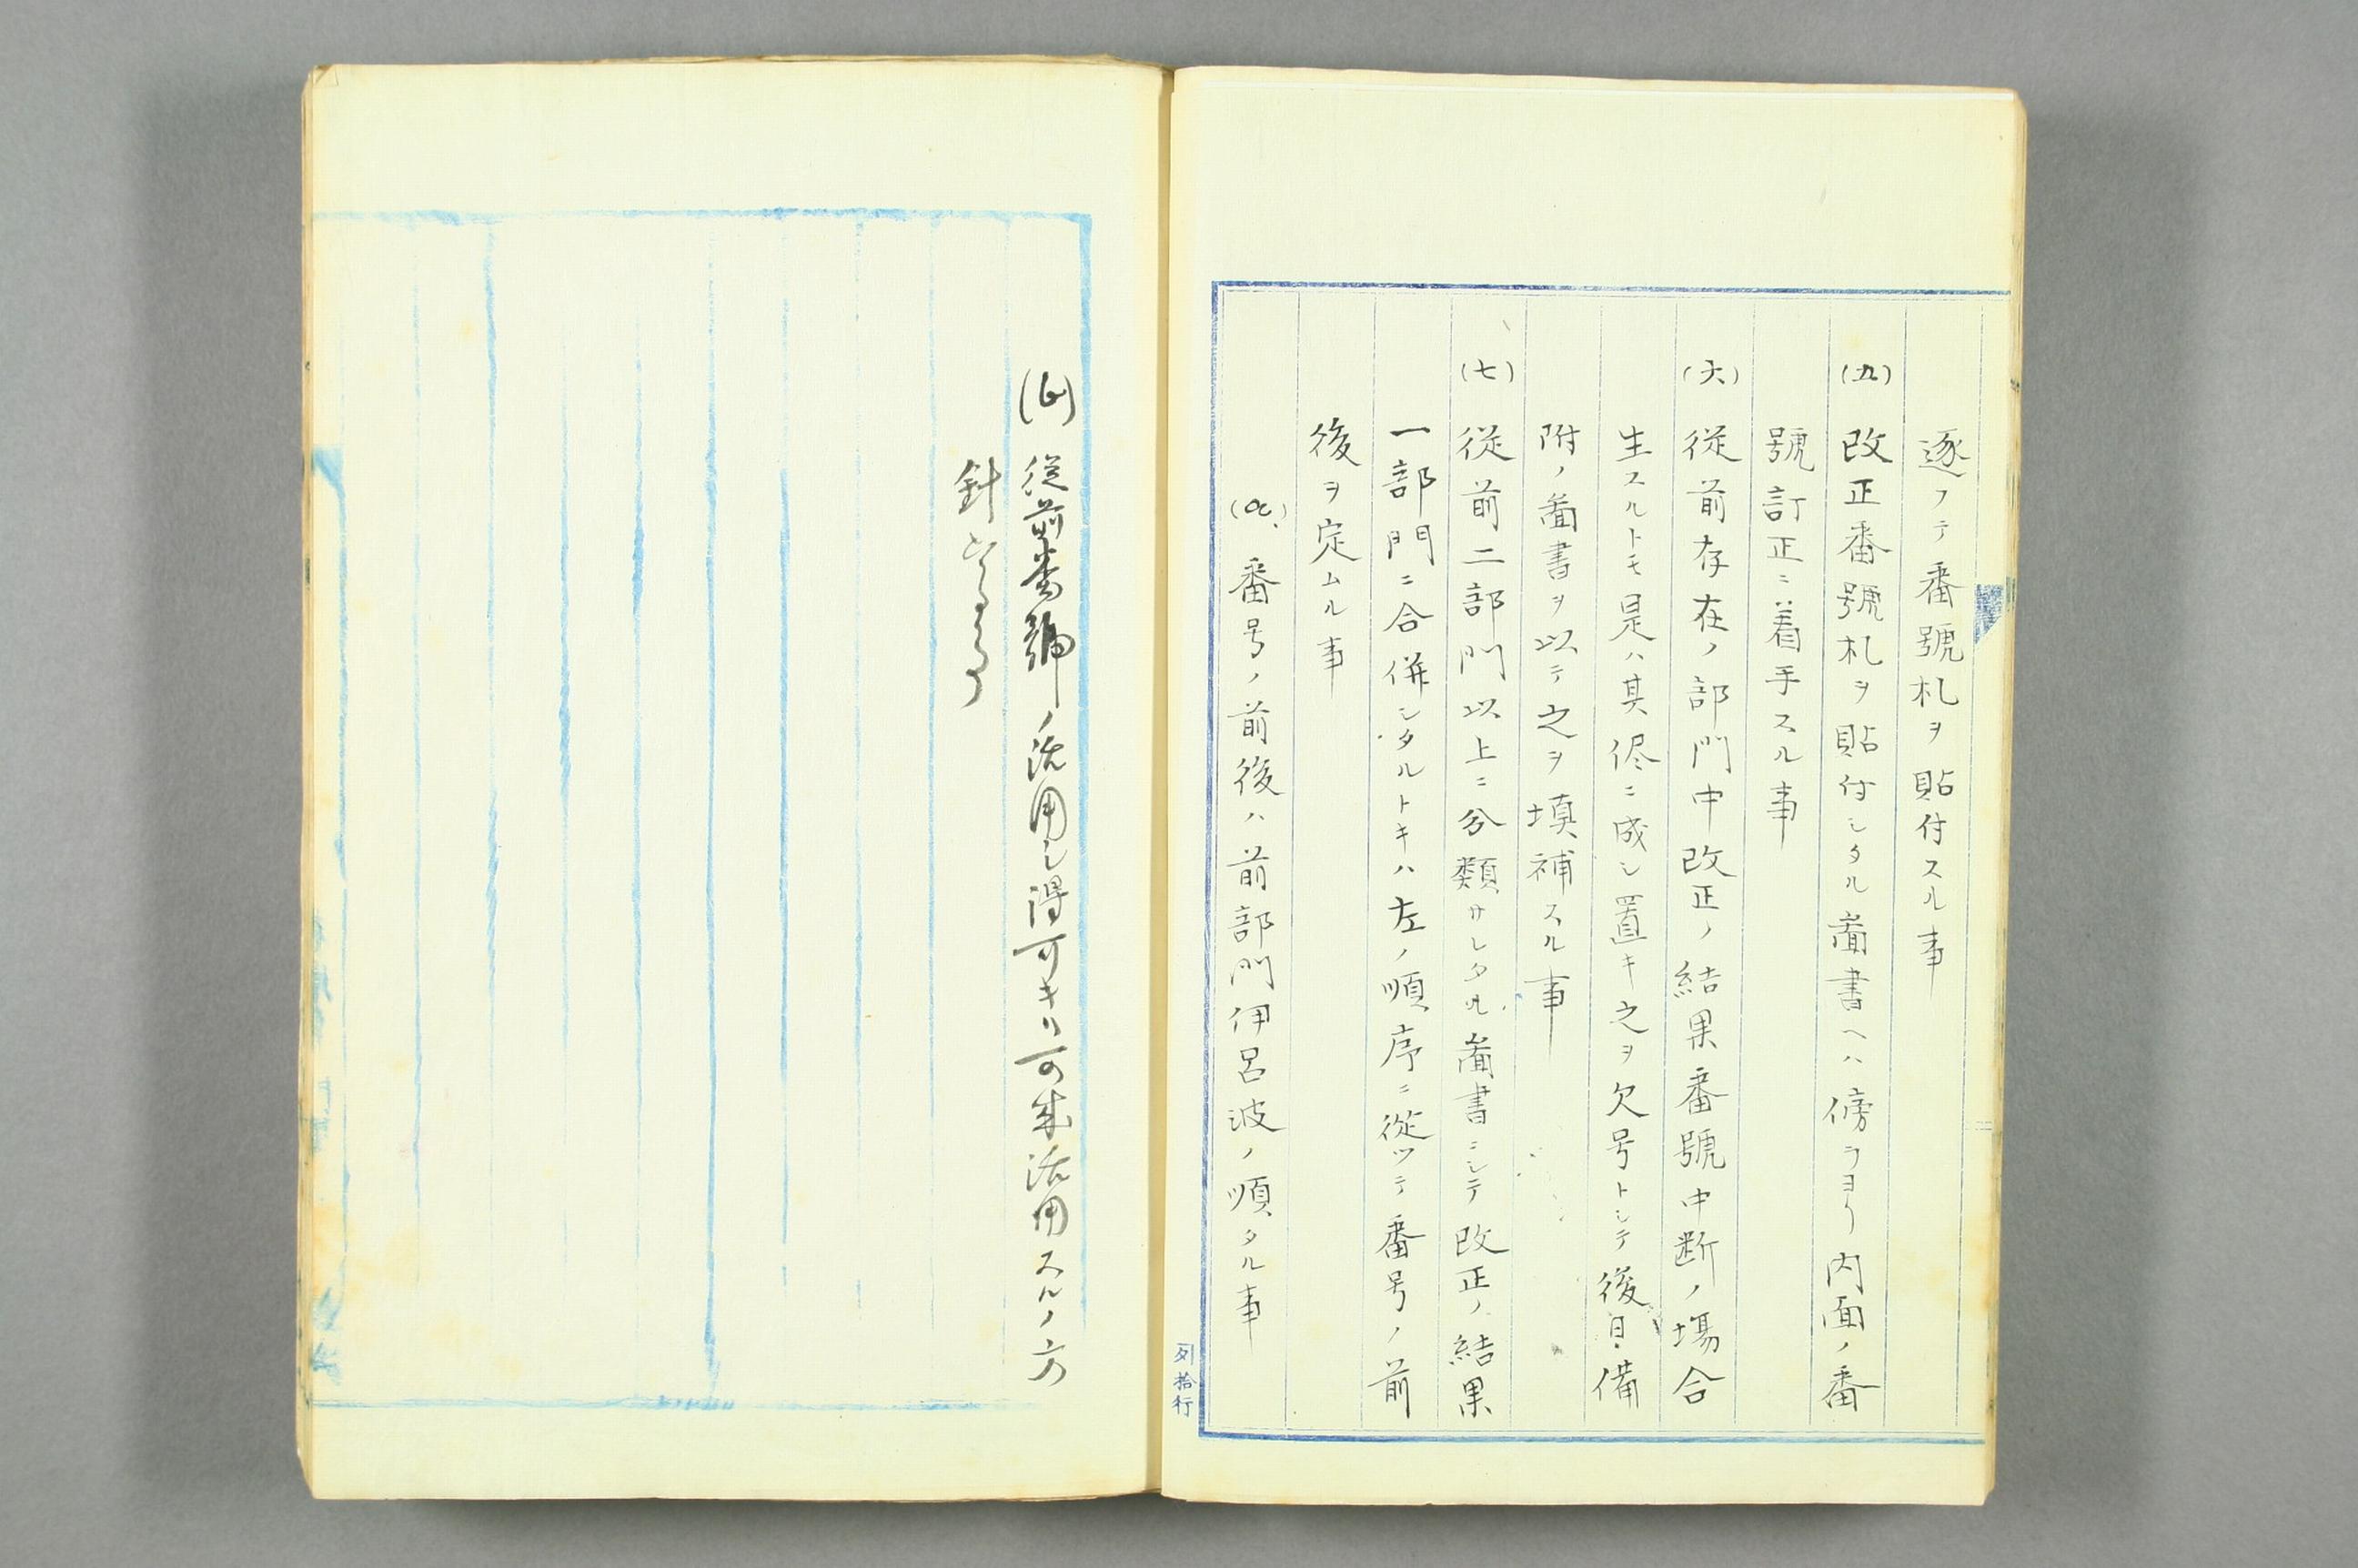 逐フテ番號札ヲ貼付スル事
(五)改正番號札ヲ貼付シタル圖書ヘハ傍ラヨリ内面ノ番
號訂正ニ着手スル事
(六)従前存在ノ部門中改正ノ結果番號中断ノ場合
生スルトモ是ハ其侭ニ成シ置キ之ヲ欠号トシテ後日備
附ノ圖書ヲ以テ之ヲ填補スル事
(七)従前二部門以上ニ分類サレタル圖書ニシテ改正ノ結果
一部門ニ合併シタルトキハ左ノ順序ニ従ツテ番号ノ前
後ヲ定ムル事
番号ノ前後ハ前部門伊呂波ノ順タル事
列拾行
従前番號ノ活用シ得可キハ可成活用スルノ方
針